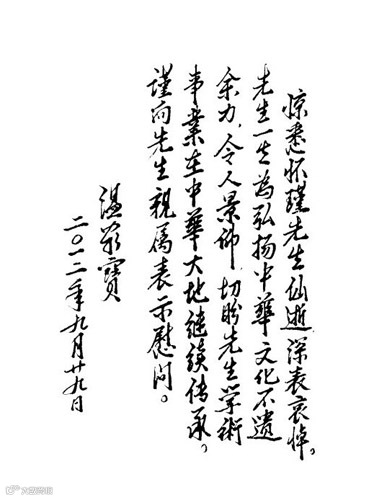 惊悉怀瑾先生仙逝,深表哀悼。
先生一生为弘扬中華文化不遗
余力,令人景仰,切盼先生学術
事業在中華大地継续传承。
谨向先生親属表示慰问。
温家寶
二〇一二年九月廿九日
大家商道